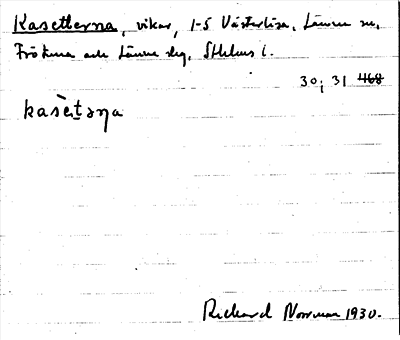 Kasetterna, vikar, 1-5 Västerlisa, Länna sn,
Frötuna och Länna skg, Sthlms l.
30; 31 468
kasètəṇa
Richard Norrman 1930.